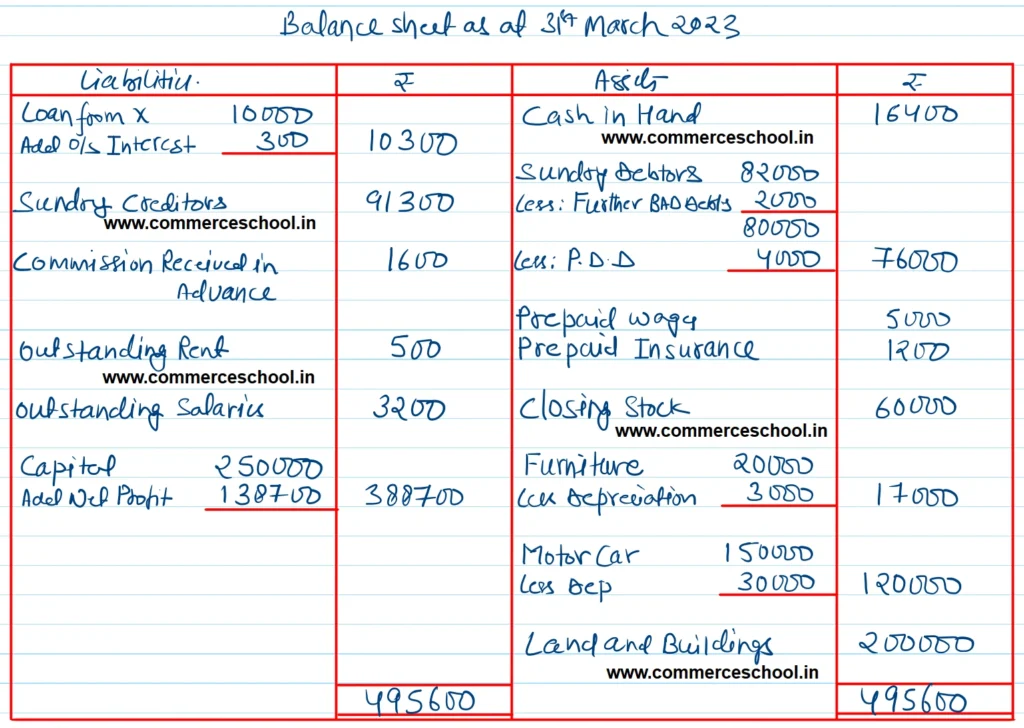 Balance sheet as at 31st March 2023
Liabilities. ₹ Assets ₹
Loan from X 10000 Cash in Hand 16400
Add O/s Interest 300 10300 www.commerceschool.in
Sundry Debtors 82000
Sundry Creditors 91300 Less: Further BAD Debts 2000
www.commerceschool.in 80000
Commission Received in 1600 Less: P.D.D 4000 76000
Advance
Prepaid wages 5000
Outstanding Rent 500 Prepaid Insurance 1200
www.commerceschool.in
Outstanding Salaries 3200 Closing Stock 60000
www.commerceschool.in
Capital 250000 Furniture 20000
Add Net Profit 138700 388700 Less Depreciation 3000 17000
Motor Car 150000
Less Dep 30000 120000
Land and Buildings 200000
www.commerceschool.in
495600 495600